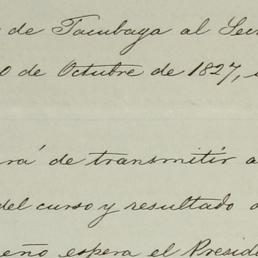 de Tacubaya al Sec
0 de Octubre de 1827,
rá de transmitir a
del curso y resultado
eño espera el Presid